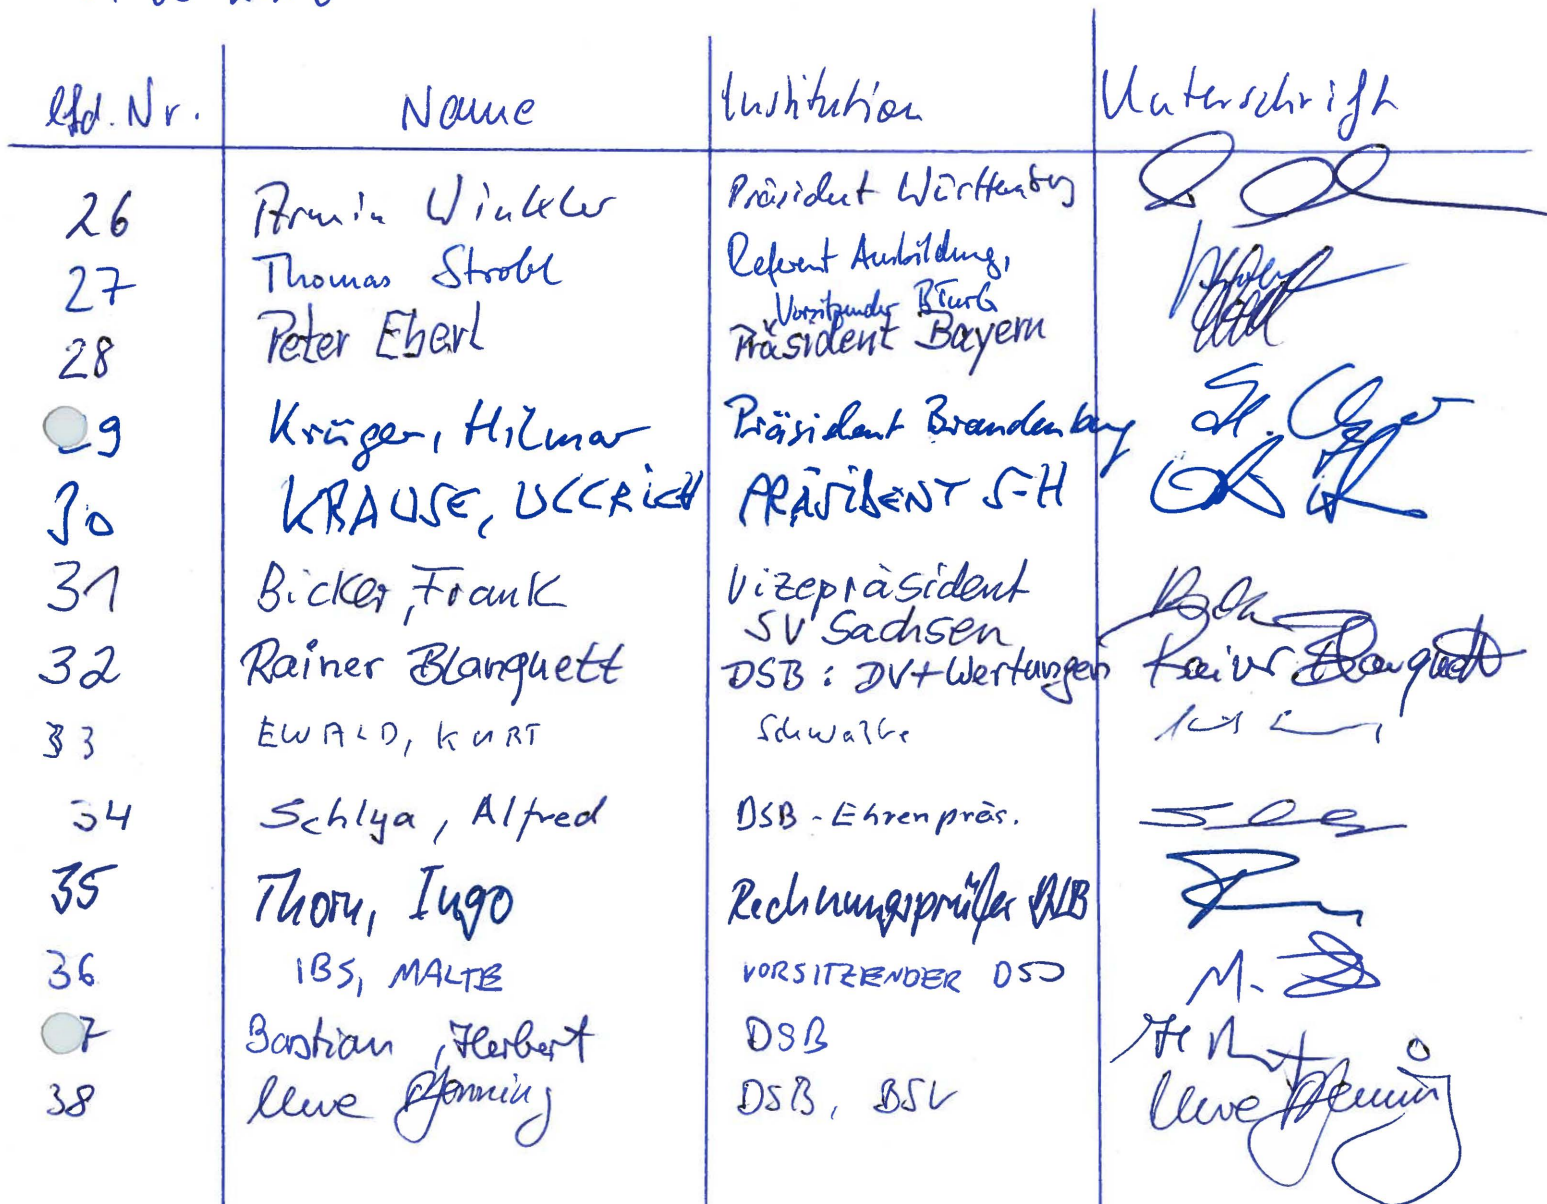 lfd. Nr. Name Institution Unterschrift
26 Armin Winkler Präsident Württemberg
27 Thomas Strobl Referent Ausbildung,
Vorsitzender BTurG
28 Peter Eberl Präsident Bayern
9 Krüger, Hilmar Präsident Brandenburg
30 KRAUSE, ULLRICH PRÄSIDENT S-H
31 Bicker, Frank Vizepräsident
SV Sachsen
32 Rainer Blanquett DSB: DV+Wertungen Rainer Blanquett
33 EWALD, KURT Schwalbe
34 Schlya, Alfred DSB-Ehrenpräs.
35 Thorn, Ingo Rechnungsprüfer
36 IBS, MALTE VORSITZENDER DSJ
7 Bastian, Herbert DSB
38 Uwe Pfenning DSB, BSV Uwe Pfenning